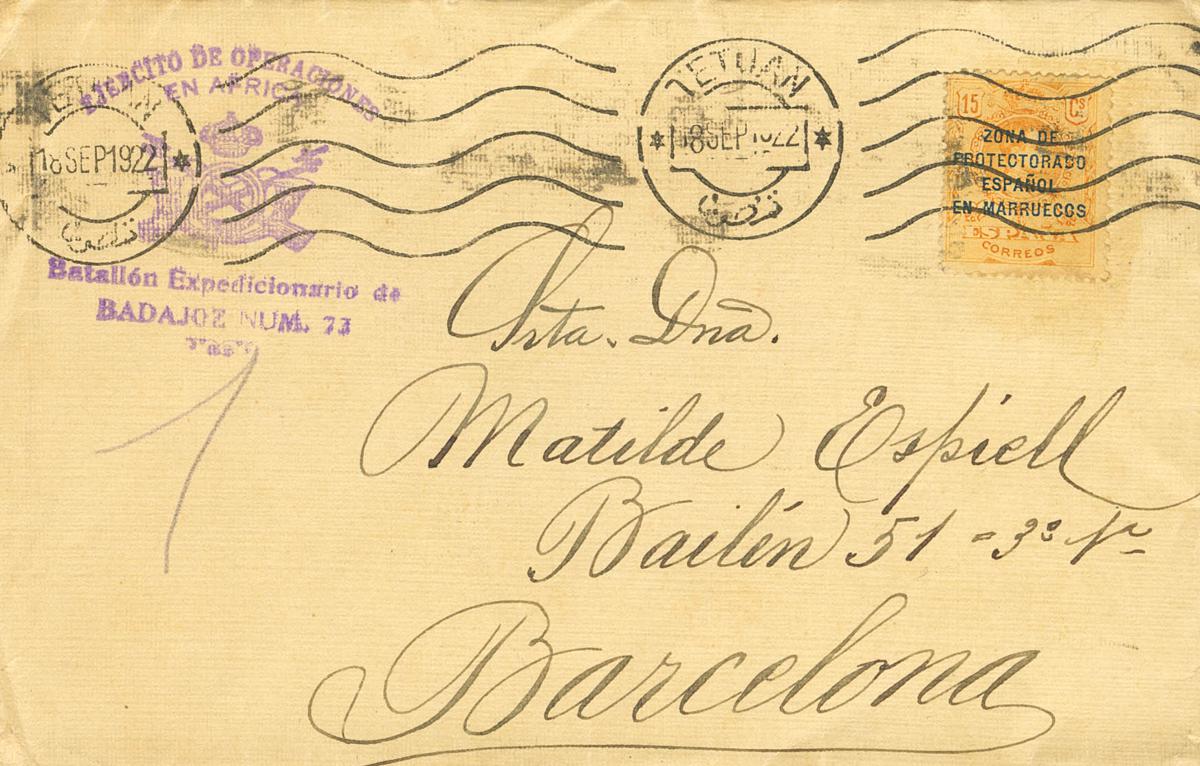 EJERCITO DE OPERACIONES
EN AFRICA
TETUAN
18 SEP 1922
Batallón Expedicionario de
BADAJOZ NUM. 73
TETUAN
18 SEP 1922
15 Cs
ZONA DE
PROTECTORADO
ESPAÑOL
EN MARRUECOS
ESPAÑA
CORREOS
Srta. Dnã.
Matilde Espiell
Bailén 51 = 3º 1ª
Barcelona